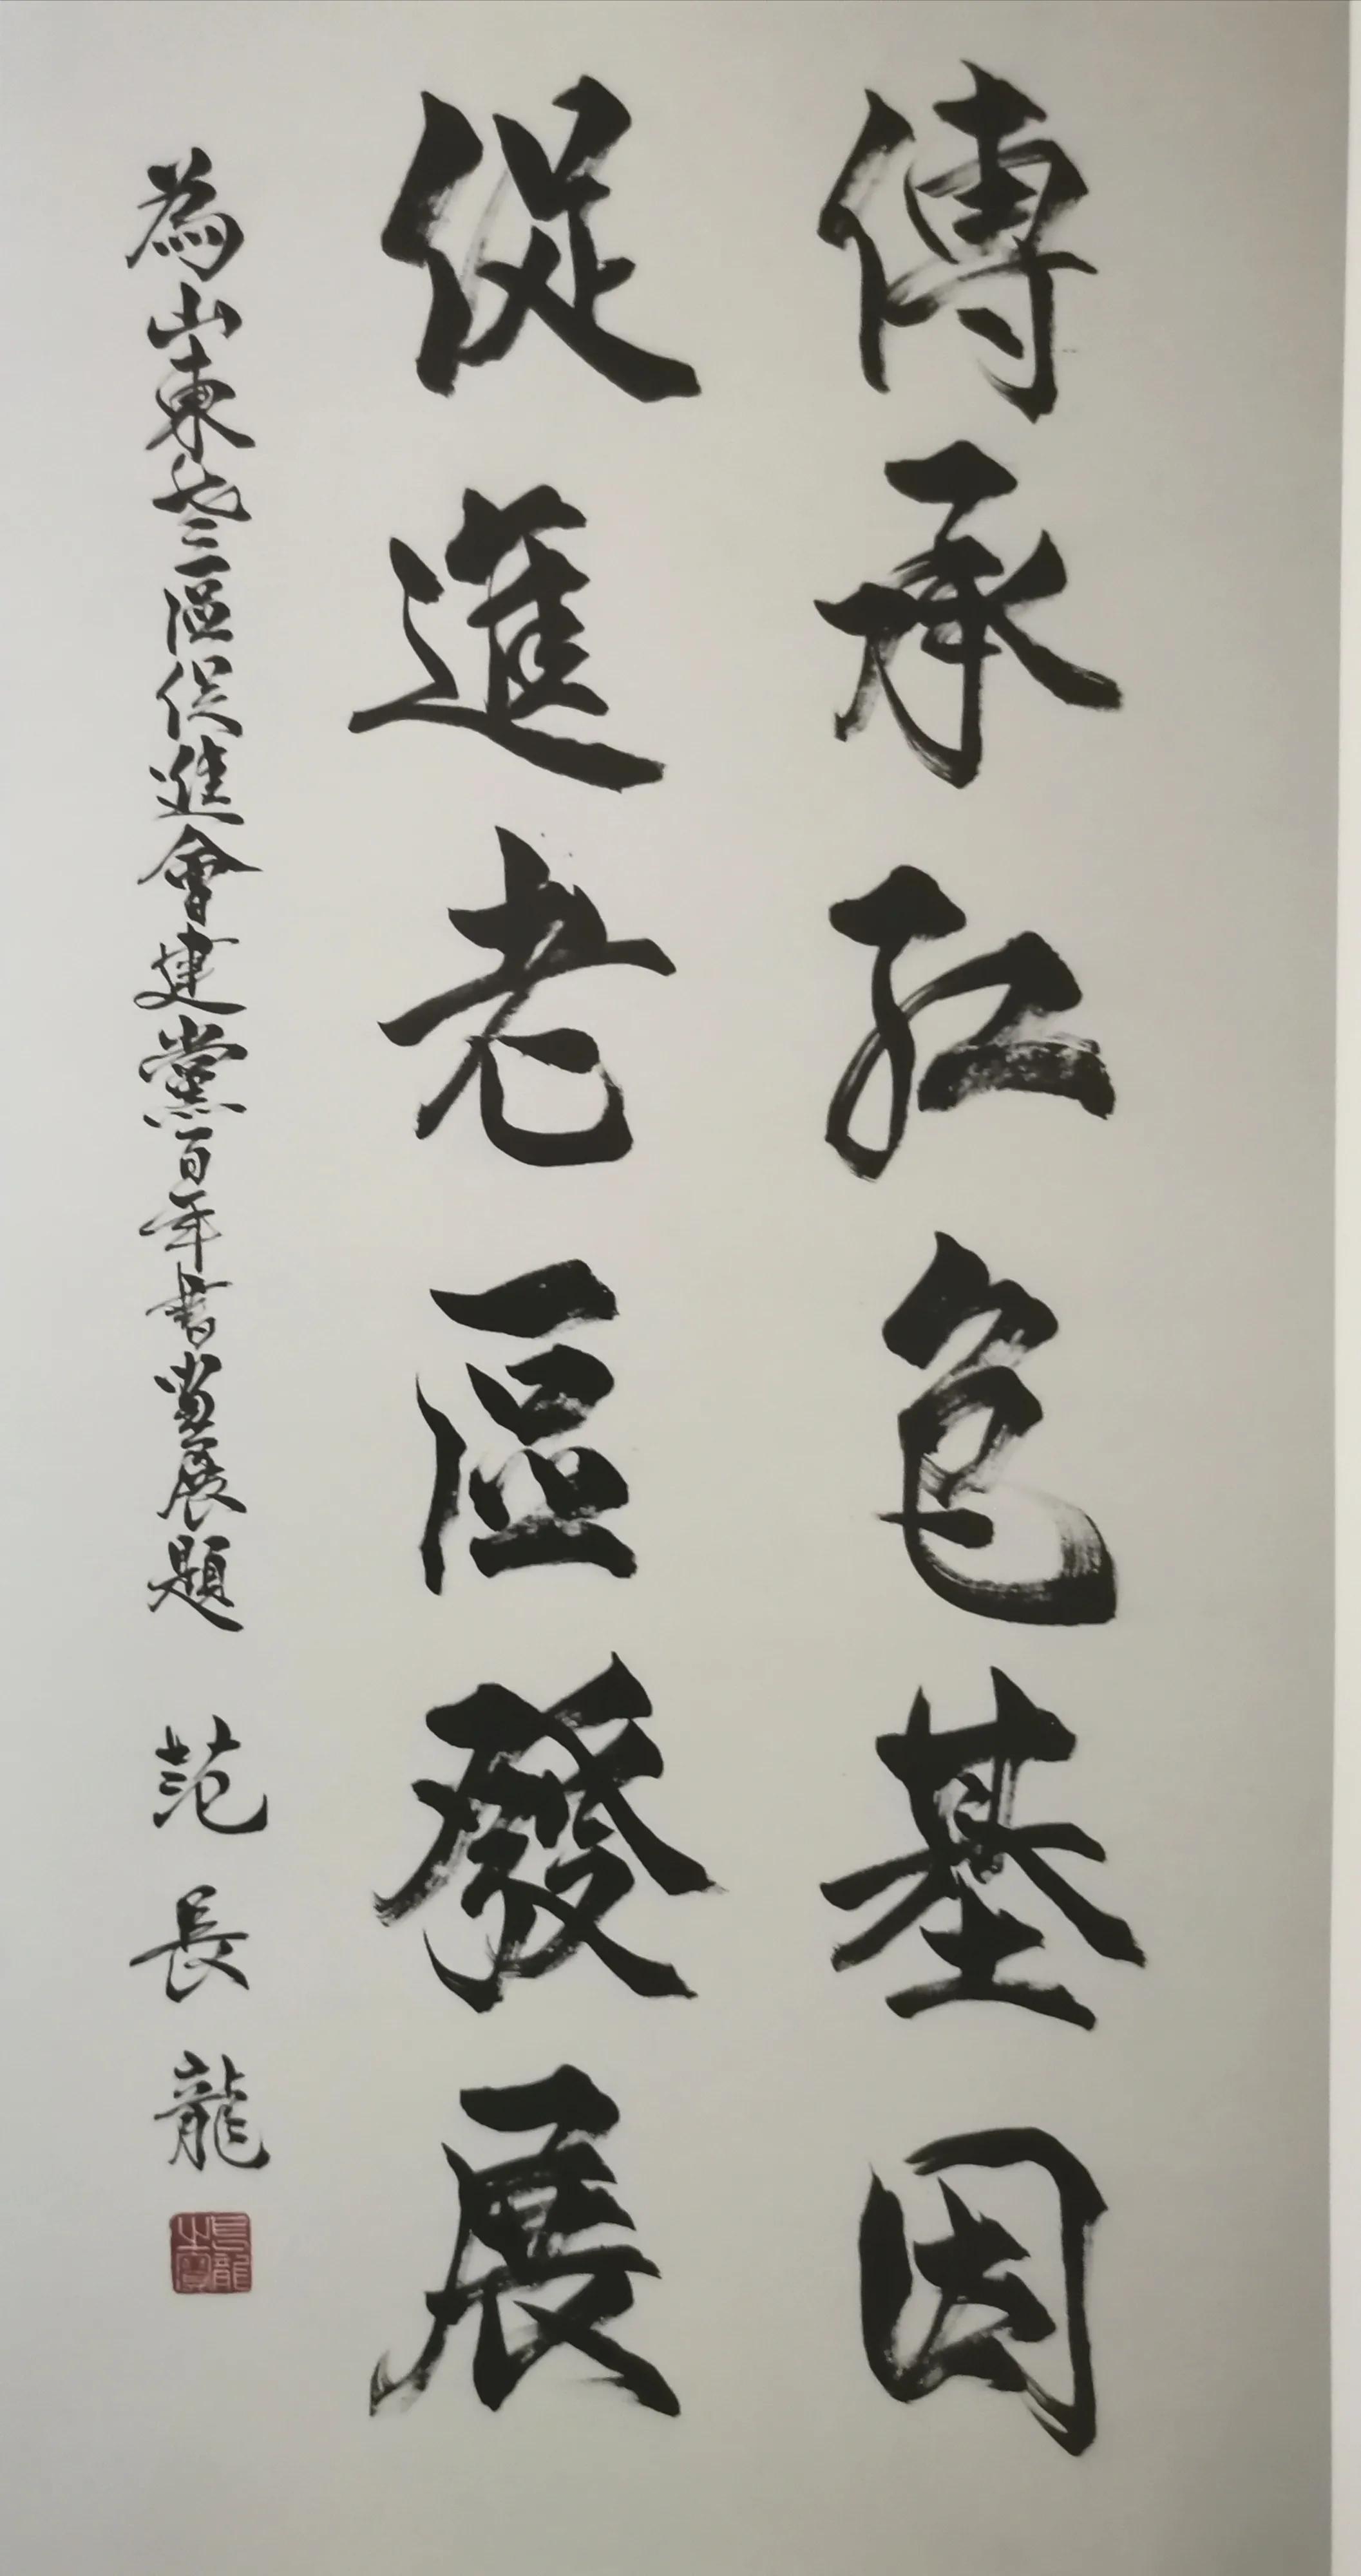 傳承紅色基因
促進老區發展
為山東老區促進會建黨百年書畫展題 范長龍
長龍之寶